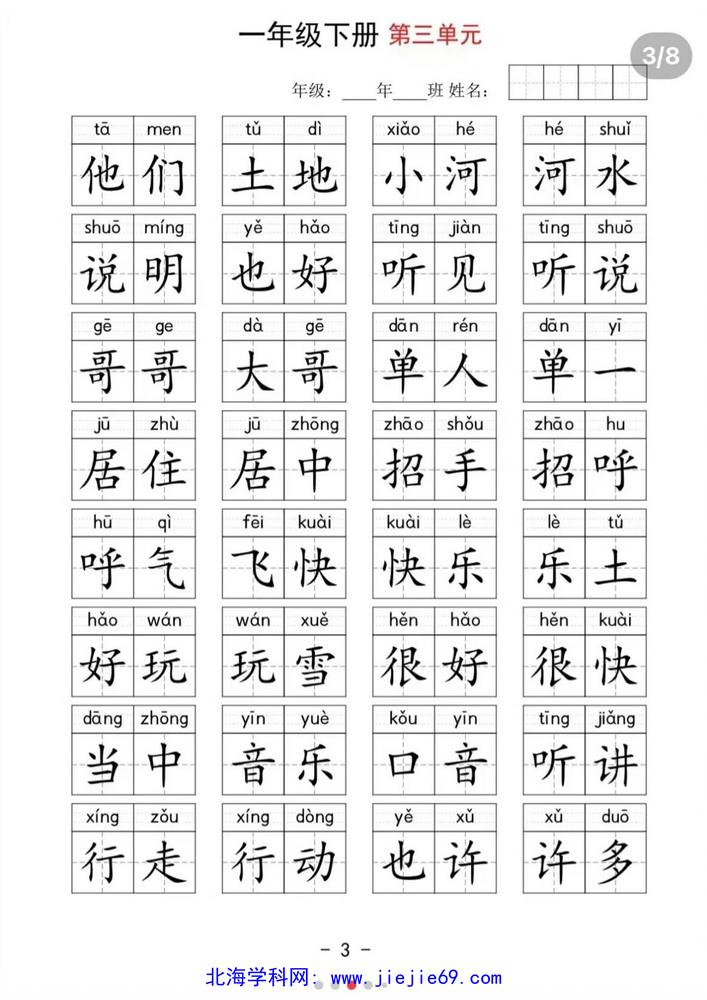 一年级下册 第三单元
3/8
年级：____年____班 姓名：
tā men tǔ dì xiǎo hé hé shuǐ
他们 土地 小河 河水
shuō míng yě hǎo tīng jiàn tīng shuō
说明 也好 听见 听说
gē ge dà gē dān rén dān yī
哥哥 大哥 单人 单一
jū zhù jū zhōng zhāo shǒu zhāo hu
居住 居中 招手 招呼
hū qì fēi kuài kuài lè lè tǔ
呼气 飞快 快乐 乐土
hǎo wán wán xuě hěn hǎo hěn kuài
好玩 玩雪 很好 很快
dāng zhōng yīn yuè kǒu yīn tīng jiǎng
当中 音乐 口音 听讲
xíng zǒu xíng dòng yě xǔ xǔ duō
行走 行动 也许 许多
- 3 -
北海学科网：www.jiejie69.com